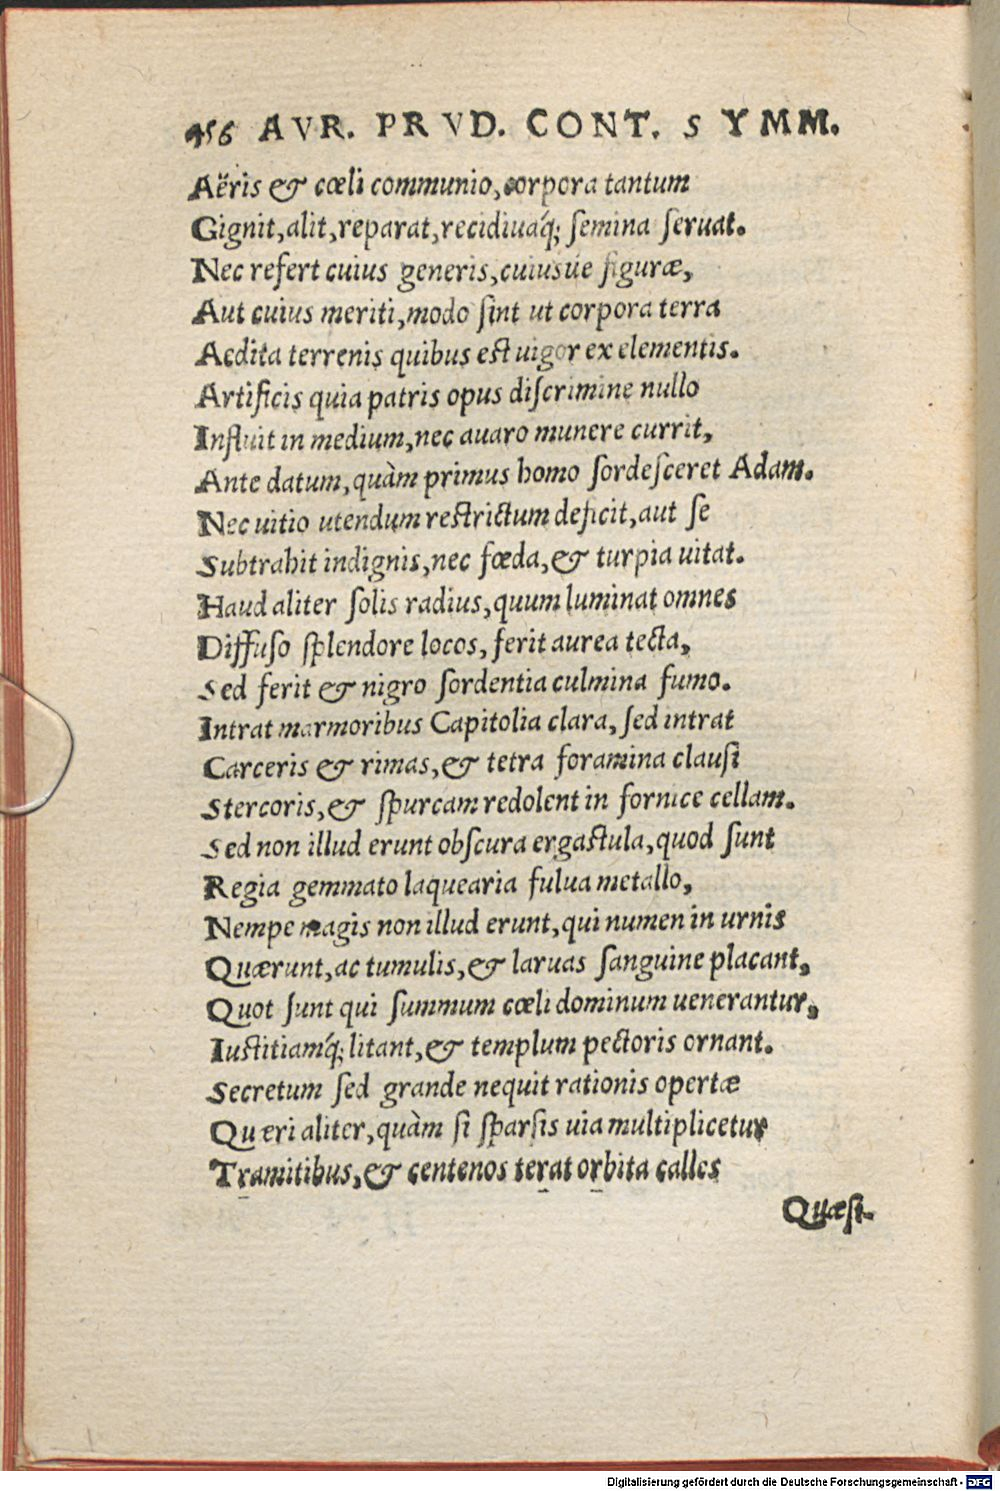 456 AVR. PRVD. CONT. SYMM.
Aëris & cœli communio, corpora tantum
Gignit, alit, reparat, recidiuaq́; ſemina ſeruat.
Nec refert cuius generis, cuiusúe figuræ,
Aut cuius meriti, modo ſint ut corpora terra
Aedita terrenis quibus est uigor ex elementis.
Artificis quia patris opus diſcrimine nullo
Influit in medium, nec auaro munere currit,
Ante datum, quàm primus homo ſordeſceret Adam.
Nec uitio utendum restrictum deficit, aut ſe
Subtrahit indignis, nec fœda, & turpia uitat.
Haud aliter ſolis radius, quum luminat omnes
Diffuſo ſplendore locos, ferit aurea tecta,
Sed ferit & nigro ſordentia culmina fumo.
Intrat marmoribus Capitolia clara, ſed intrat
Carceris & rimas, & tetra foramina clauſi
Stercoris, & ſpurcam redolent in fornice cellam.
Sed non illud erunt obſcura ergaſtula, quod ſunt
Regia gemmato laquearia fulua metallo,
Nempe magis non illud erunt, qui numen in urnis
Quærunt, ac tumulis, & laruas ſanguine placant,
Quot ſunt qui ſummum cœli dominum uenerantur,
Iustitiamq́; litant, & templum pectoris ornant.
Secretum ſed grande nequit rationis opertæ
Quæri aliter, quàm ſi ſparſis uia multiplicetur
Tramitibus, & centenos terat orbita calles
Quæſi-
Digitalisierung gefördert durch die Deutsche Forschungsgemeinschaft - DFG